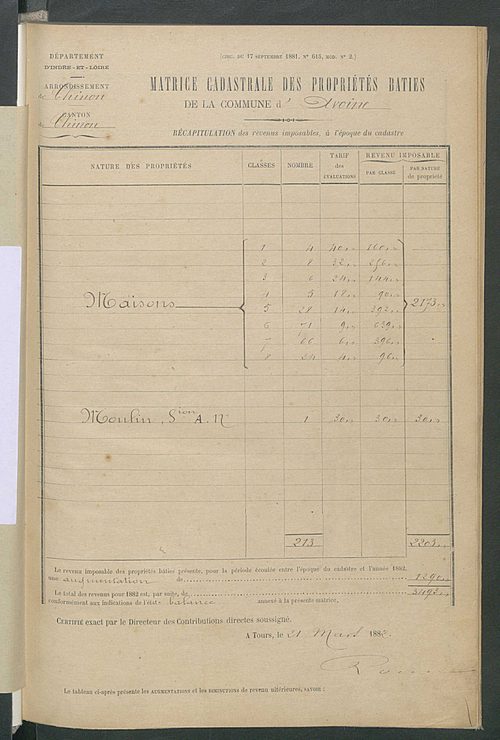 DÉPARTEMENT
D'INDRE-ET-LOIRE
ARRONDISSEMENT
de Chinon
CANTON
de Chinon
(CIRC. DU 17 SEPTEMBRE 1881. N° 613, MOD. N° 2.)
MATRICE CADASTRALE DES PROPRIÉTÉS BATIES
DE LA COMMUNE d' Avoine
RÉCAPITULATION des revenus imposables, à l'époque du cadastre
NATURE DES PROPRIÉTÉS CLASSES NOMBRE TARIF des ÉVALUATIONS REVENU IMPOSABLE
PAR CLASSE PAR NATURE de propriété
1 4 40 160
2 8 32 256
3 6 24 144
4 5 18 90
Maisons 5 28 14 392 2173
6 71 9 639
7 66 6 396
8 24 4 96
Moulin, Son A. N° 1 30 30 30
213 2203
Le revenu imposable des propriétés bâties présente, pour la période écoulée entre l'époque du cadastre et l'année 1882,
une augmentation de 1290
Le total des revenus pour 1882 est, par suite, de 3493
conformément aux indications de l'état balance annexé à la présente matrice.
CERTIFIÉ exact par le Directeur des Contributions directes soussigné.
A Tours, le 21 Mars 1882.
Le tableau ci-après présente les AUGMENTATIONS et les DIMINUTIONS de revenu ultérieures, SAVOIR :